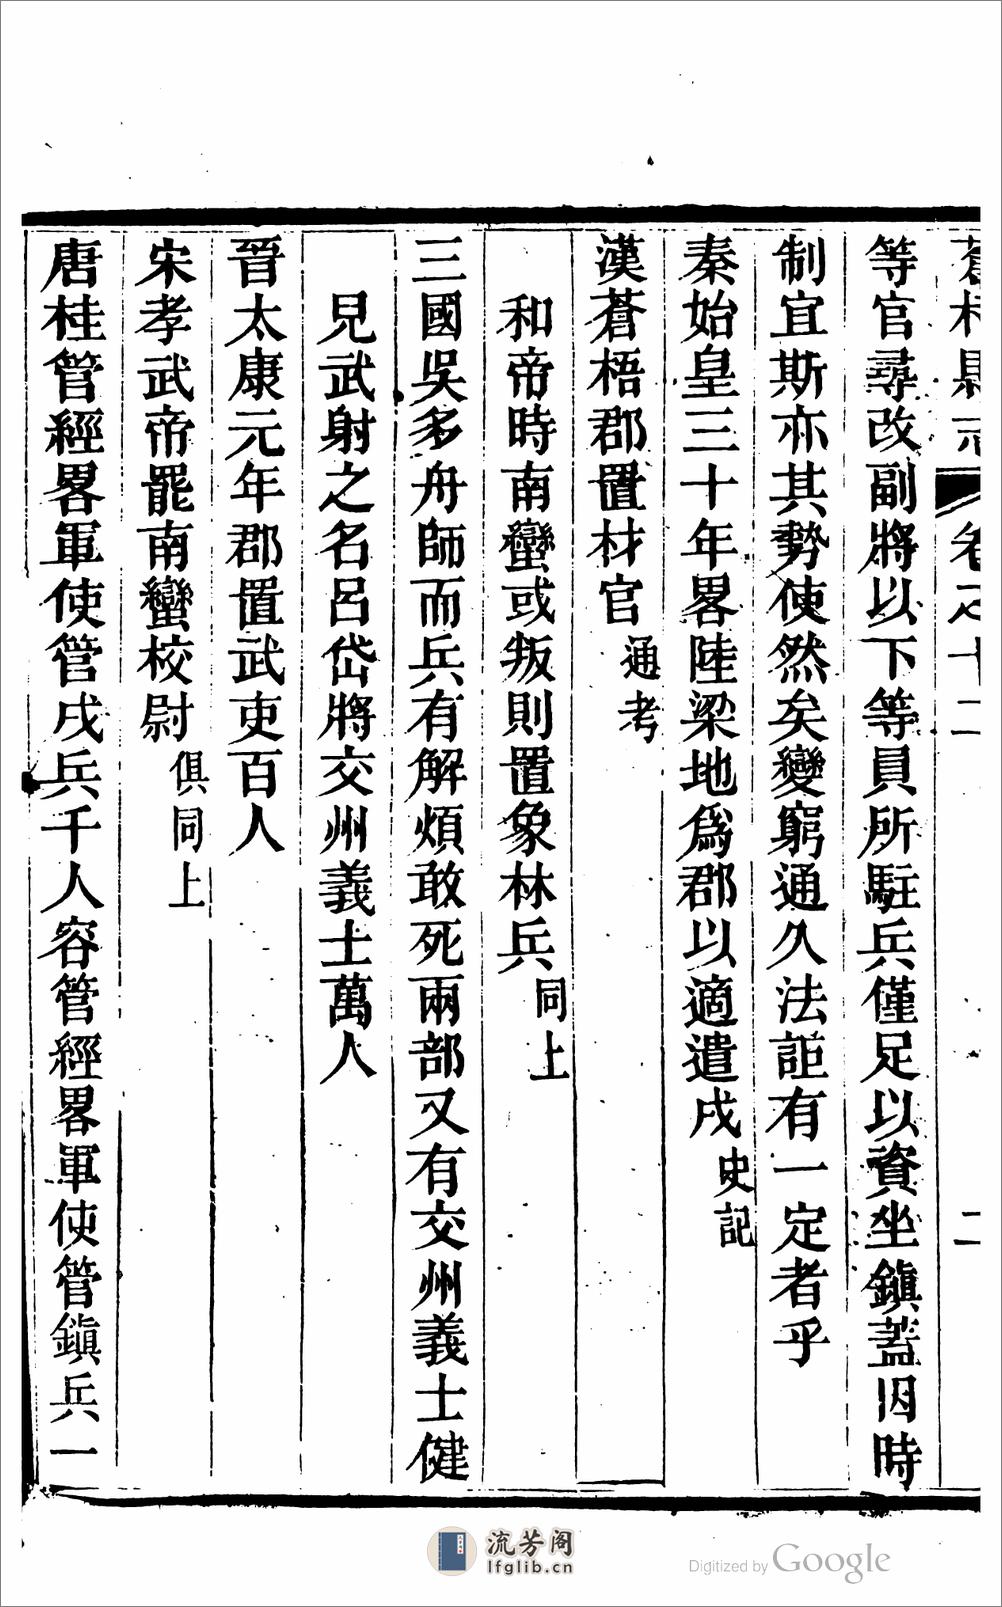 縣志 卷之十二 二
等官尋改副將以下等員所駐兵僅足以資坐鎭蓋因時
制宜斯亦其勢使然矣變窮通久法詎有一定者乎
秦始皇三十年畧陸梁地爲郡以適遣戍史記
漢蒼梧郡置材官通考
和帝時南蠻或叛則置象林兵同上
三國吳多舟師而兵有解煩敢死兩部又有交州義士健
兒武射之名呂岱將交州義士萬人
晉太康元年郡置武吏百人
宋孝武帝罷南蠻校尉俱同上
唐桂管經畧軍使管戍兵千人容管經畧軍使管鎭兵一
流芳阁
lfglib.cn
Digitized by Google